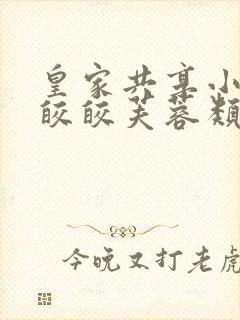 皇家共享小
皎皎芙蓉颜
今晚又打老虎